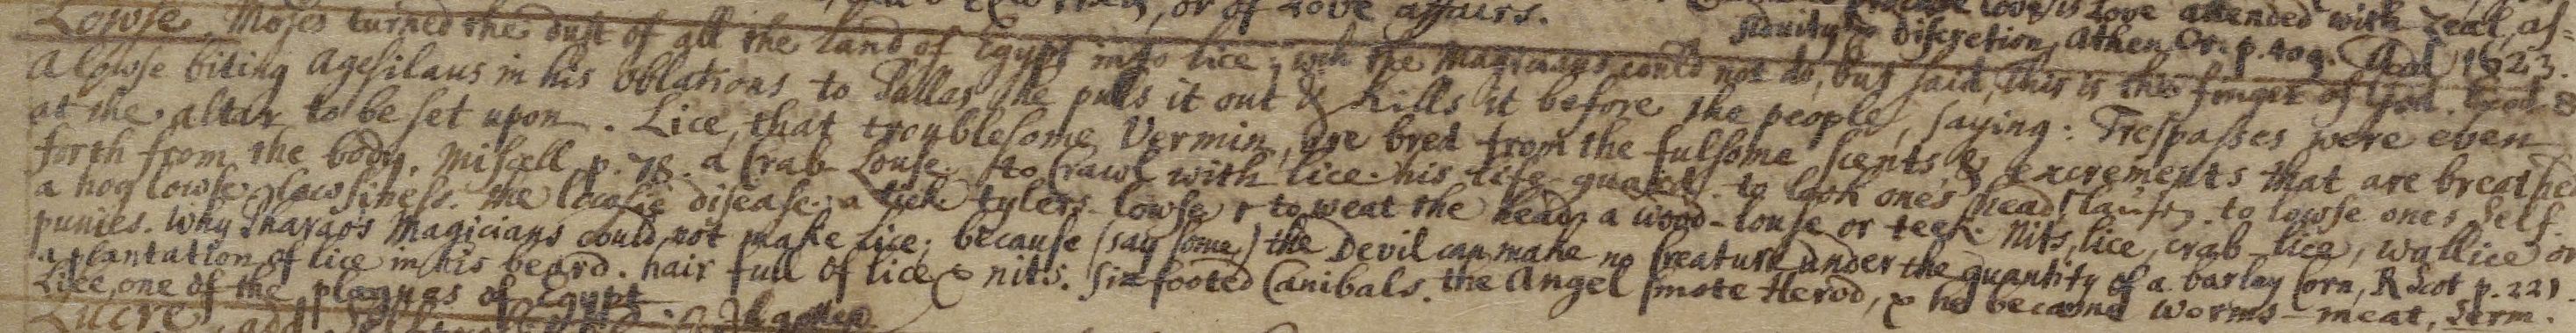 or of Love affairs.
Love is Love attended with Zeal, as-
siduity & discretion, Athen. Or. p. 409. Ad 1623.
Lowse. Moses turned the dust of all the land of Egypt into lice; wch the Magicians could not do, but said, This is the finger of God. Exod 8
A lowse biting Agesilaus in his oblations to Pallas, he pulls it out & kills it before the people, saying: Trespasses were even
at the altar to be set upon. Lice, that troublesome Vermin, are bred from the fulsome scents & excrements that are breathed
forth from the body. Miscell p. 78. a Crab-Louse. to Crawl with lice. his life-guard. to look one's head. to lowse ones self.
a hog lowse. lowsiness. the lowsie disease. a tick. tylers lowse. to weat the head. a wood-louse or teek. Nits, lice, crab-lice, wallice or
punies. Why Pharao's Magicians could not make lice; because (say some) the Devil can make no Creature under the quantity of a barley Corn, R Scot p. 221
a plantation of lice in his beard. hair full of lice & nits. Six footed Canibals. the Angel smote Herod, & he became worms-meat, Serm.
Lice, one of the plagues of Egypt.
Lucre, add